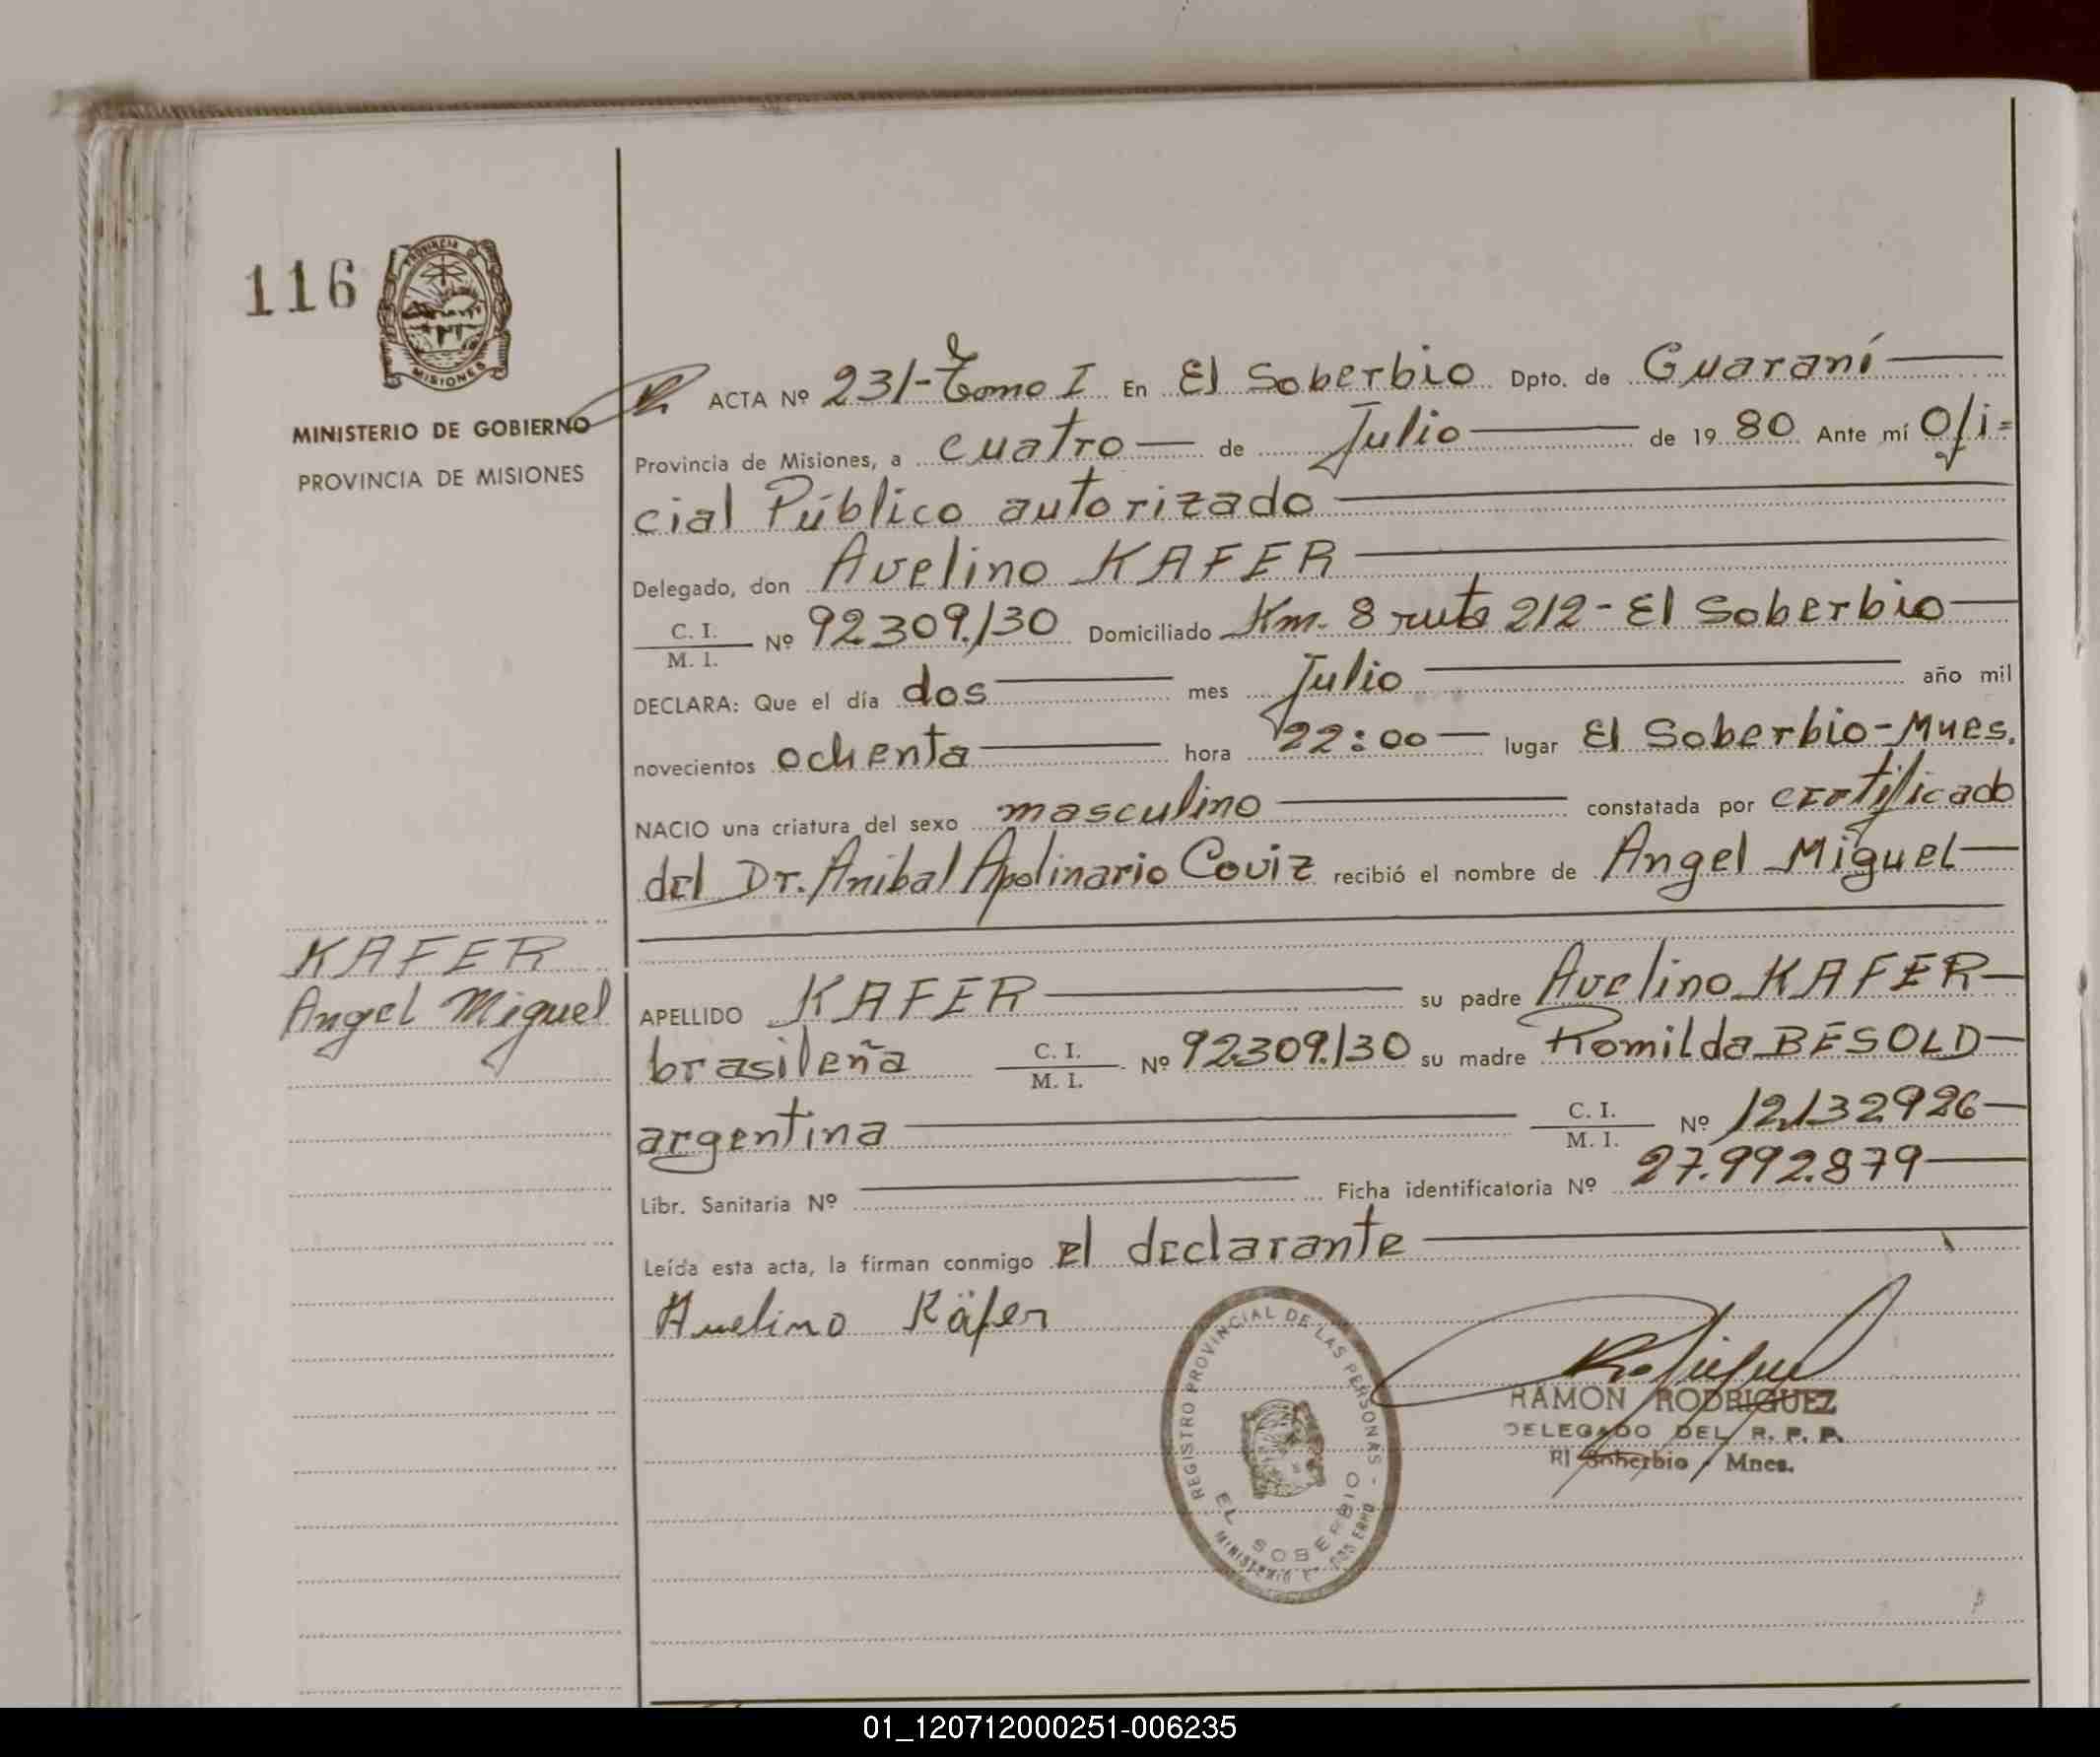 116
PROVINCIA DE
MISIONES
MINISTERIO DE GOBIERNO
PROVINCIA DE MISIONES
ACTA Nº 231-Tomo I En El Soberbio Dpto. de Guaraní
Provincia de Misiones, a cuatro de Julio de 1980 Ante mí Ofi=
cial Público autorizado
Delegado, don Avelino KAFER
C. I.
M. I. Nº 92.309.130 Domiciliado Km. 8 ruta 212 - El Soberbio
DECLARA: Que el día dos mes Julio año mil
novecientos ochenta hora 22:00 lugar El Soberbio-Mnes.
NACIO una criatura del sexo masculino constatada por certificado
del Dr. Anibal Apolinario Coviz recibió el nombre de Angel Miguel
KAFER
Angel Miguel
APELLIDO KAFER su padre Avelino KAFER
brasileña C. I.
M. I. Nº 92.309.130 su madre Romilda BESOLD
argentina C. I.
M. I. Nº 12.132926
Libr. Sanitaria Nº Ficha identificatoria Nº 27.992.879
Leída esta acta, la firman conmigo el declarante
Avelino Käfer
REGISTRO PROVINCIAL DE LAS PERSONAS -
EL SOBERBIO
RAMON RODRIGUEZ
DELEGADO DEL R. P. P.
El Soberbio - Mnes.
01_120712000251-006235